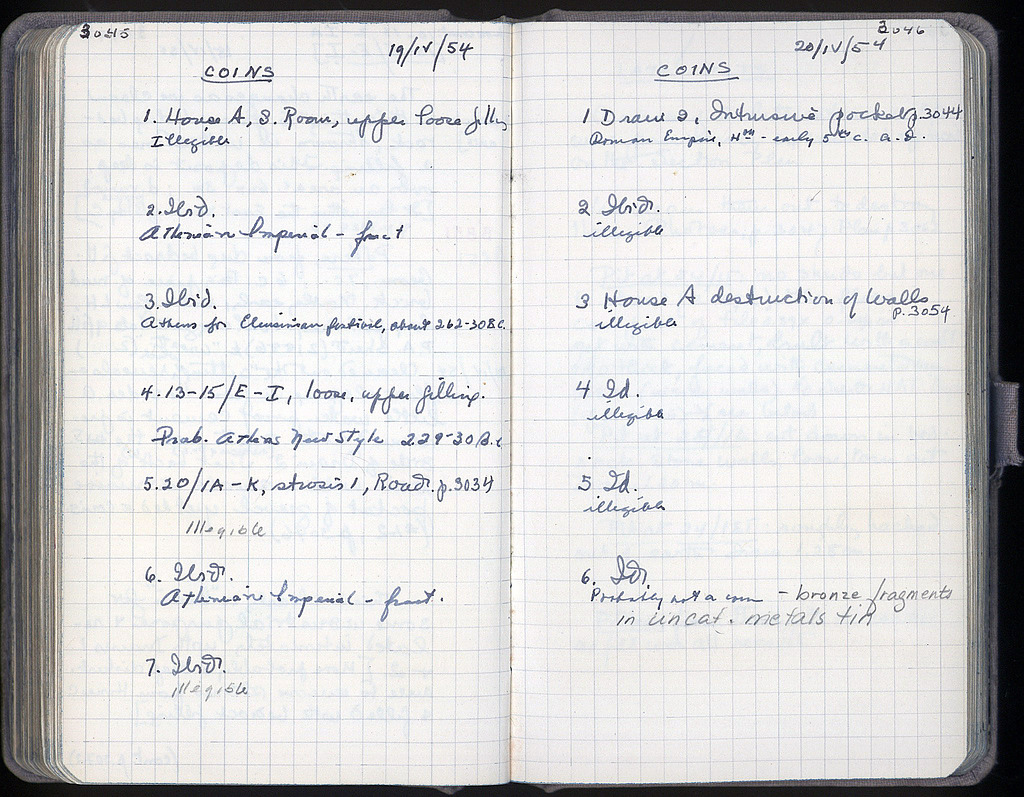 3045
19/IV/54
COINS
1. House A, S. Room, upper loose filling
Illegible
2. Ibid.
Athenian Imperial - fract
3. Ibid.
Athens for Eleusinian festival, about 262-30 B.C.
4. 13-15/E-I, loose, upper filling.
Prob. Athens New Style 229-30 B.C.
5. 20/IA-K, strosis 1, Road. p.3034
Illegible
6. Ibid.
Athenian Imperial - fract.
7. Ibid.
illegible
3046
20/IV/54
COINS
1 Drain 2, Intrusive pocket p.3044
Roman Empire, 4th - early 5th c. A.D.
2 Ibid.
illegible
3 House A destruction of walls
p.3054
illegible
4 Id.
illegible
5 Id.
illegible
6. Id.
Probably not a coin - bronze fragments
in uncat. metals tin